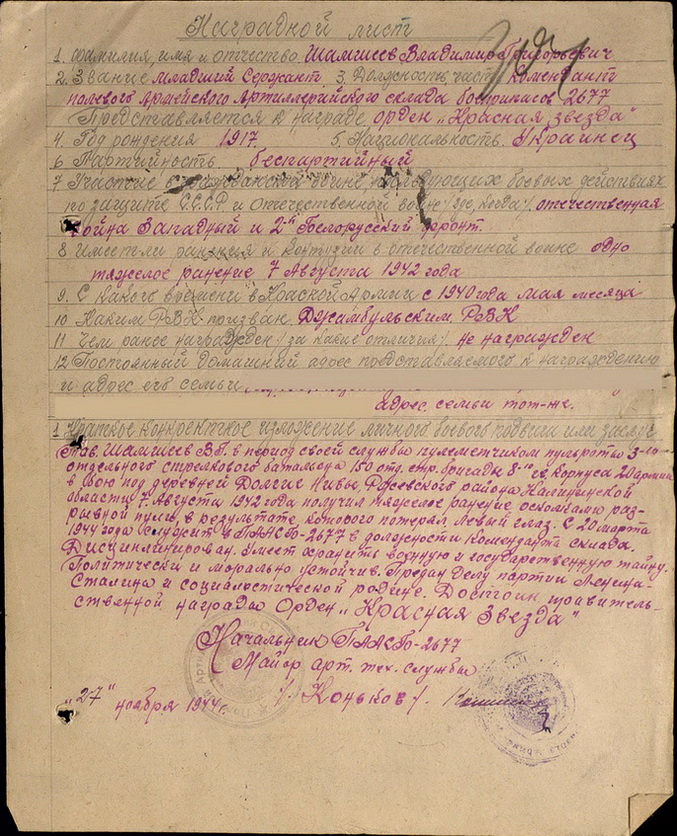 Наградной лист
1. Фамилия, имя и отчество Шамшеев Владимир Григорьевич
2. Звание Младший Сержант 3. Должность, часть Комендант
полевого Армейского Артиллерийского склада боеприпасов 2677
Представляется к награде орден „Красная звезда"
4. Год рождения 1917. 5. Национальность Украинец
6 Партийность беспартийный
7 Участие в гражданской войне, последующих боевых действиях
по защите СССР и отечественной войне (где, когда) отечественная
война Западный и 2й Белорусский фронт.
8 Имеет ли ранения и контузии в отечественной войне одно
тяжелое ранение 7 Августа 1942 года
9. С какого времени в Красной Армии с 1940 года мая месяца
10 Каким РВК призван Джамбульским РВК
11 Чем ранее награжден (за какие отличия) не награжден
12 Постоянный домашний адрес представляемого к награждению
и адрес его семьи
адрес семьи тот-же.
1 Краткое конкретное изложение личного боевого подвига или заслуг
Тов. Шамшеев В.Г. в период своей службы пулеметчиком пульроты 3-го
отдельного стрелкового батальона 150 отд. стр. бригады 8-го гв. корпуса 20 армии
в бою под деревней Долгие Нивы, Ржевского района Калининской
области 7. Августа 1942 года получил тяжелое ранение осколками раз-
рывной пули, в результате которого потерял левый глаз. С 20 марта
1944 года служит в ПААСБ-2677 в должности коменданта склада.
Дисциплинирован. Умеет хранить военную и государственную тайну.
Политически и морально устойчив. Предан делу партии Ленина-
Сталина и социалистической родине. Достоин правитель-
ственной награды Орден „Красная Звезда"
Начальник ПААСБ-2677
Майор арт. тех. службы
/ Коньков /.
„27" ноября 1944г.